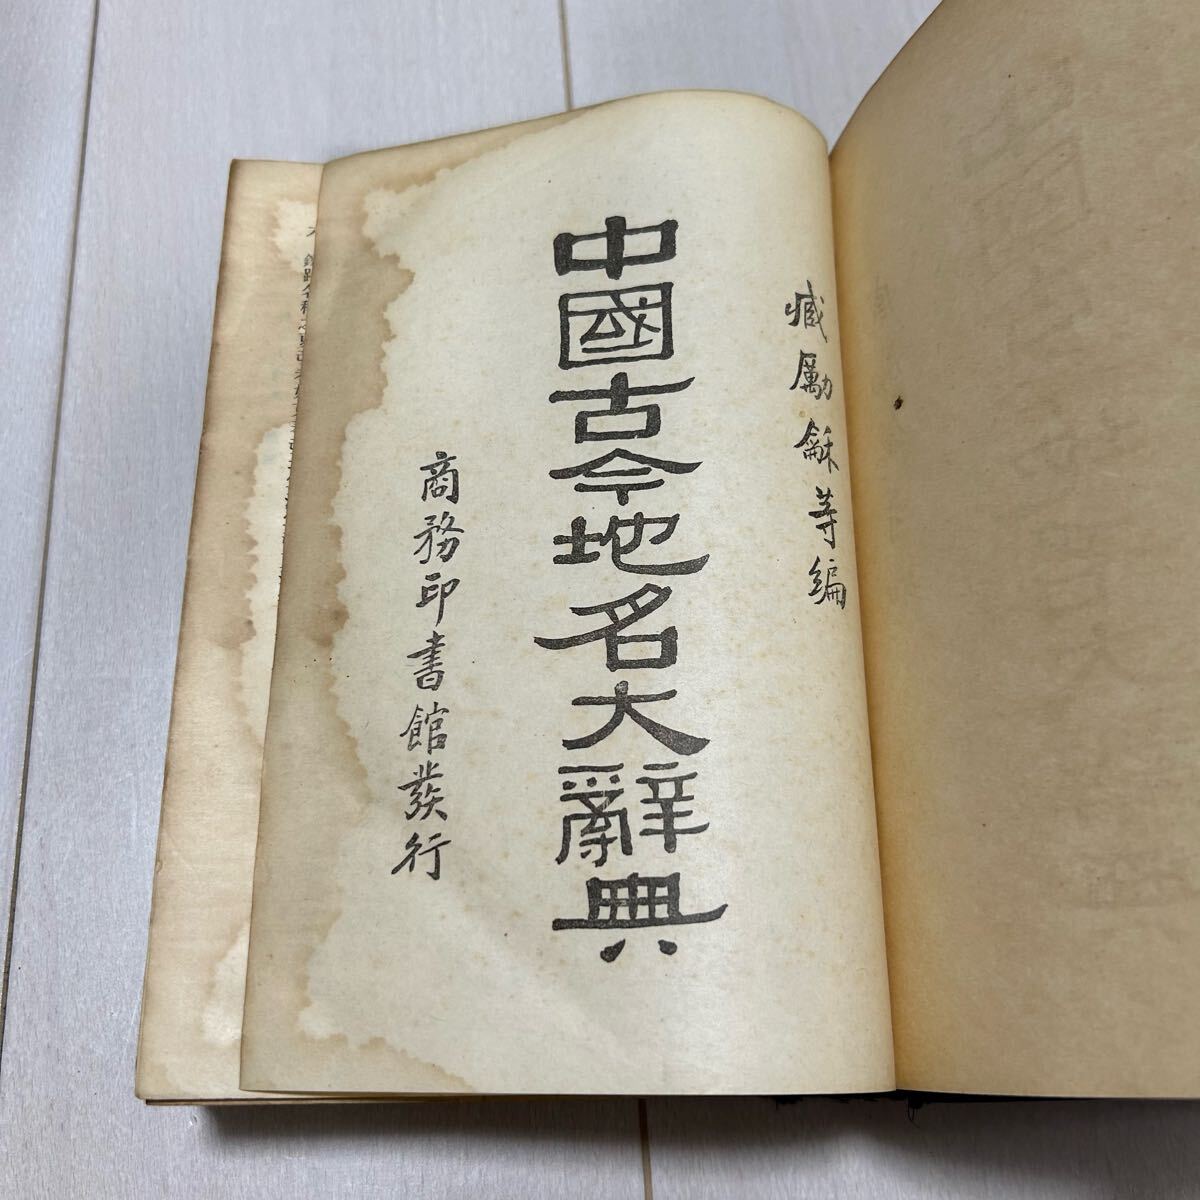 臧勵龢等編
中國古今地名大辭典
商務印書館發行